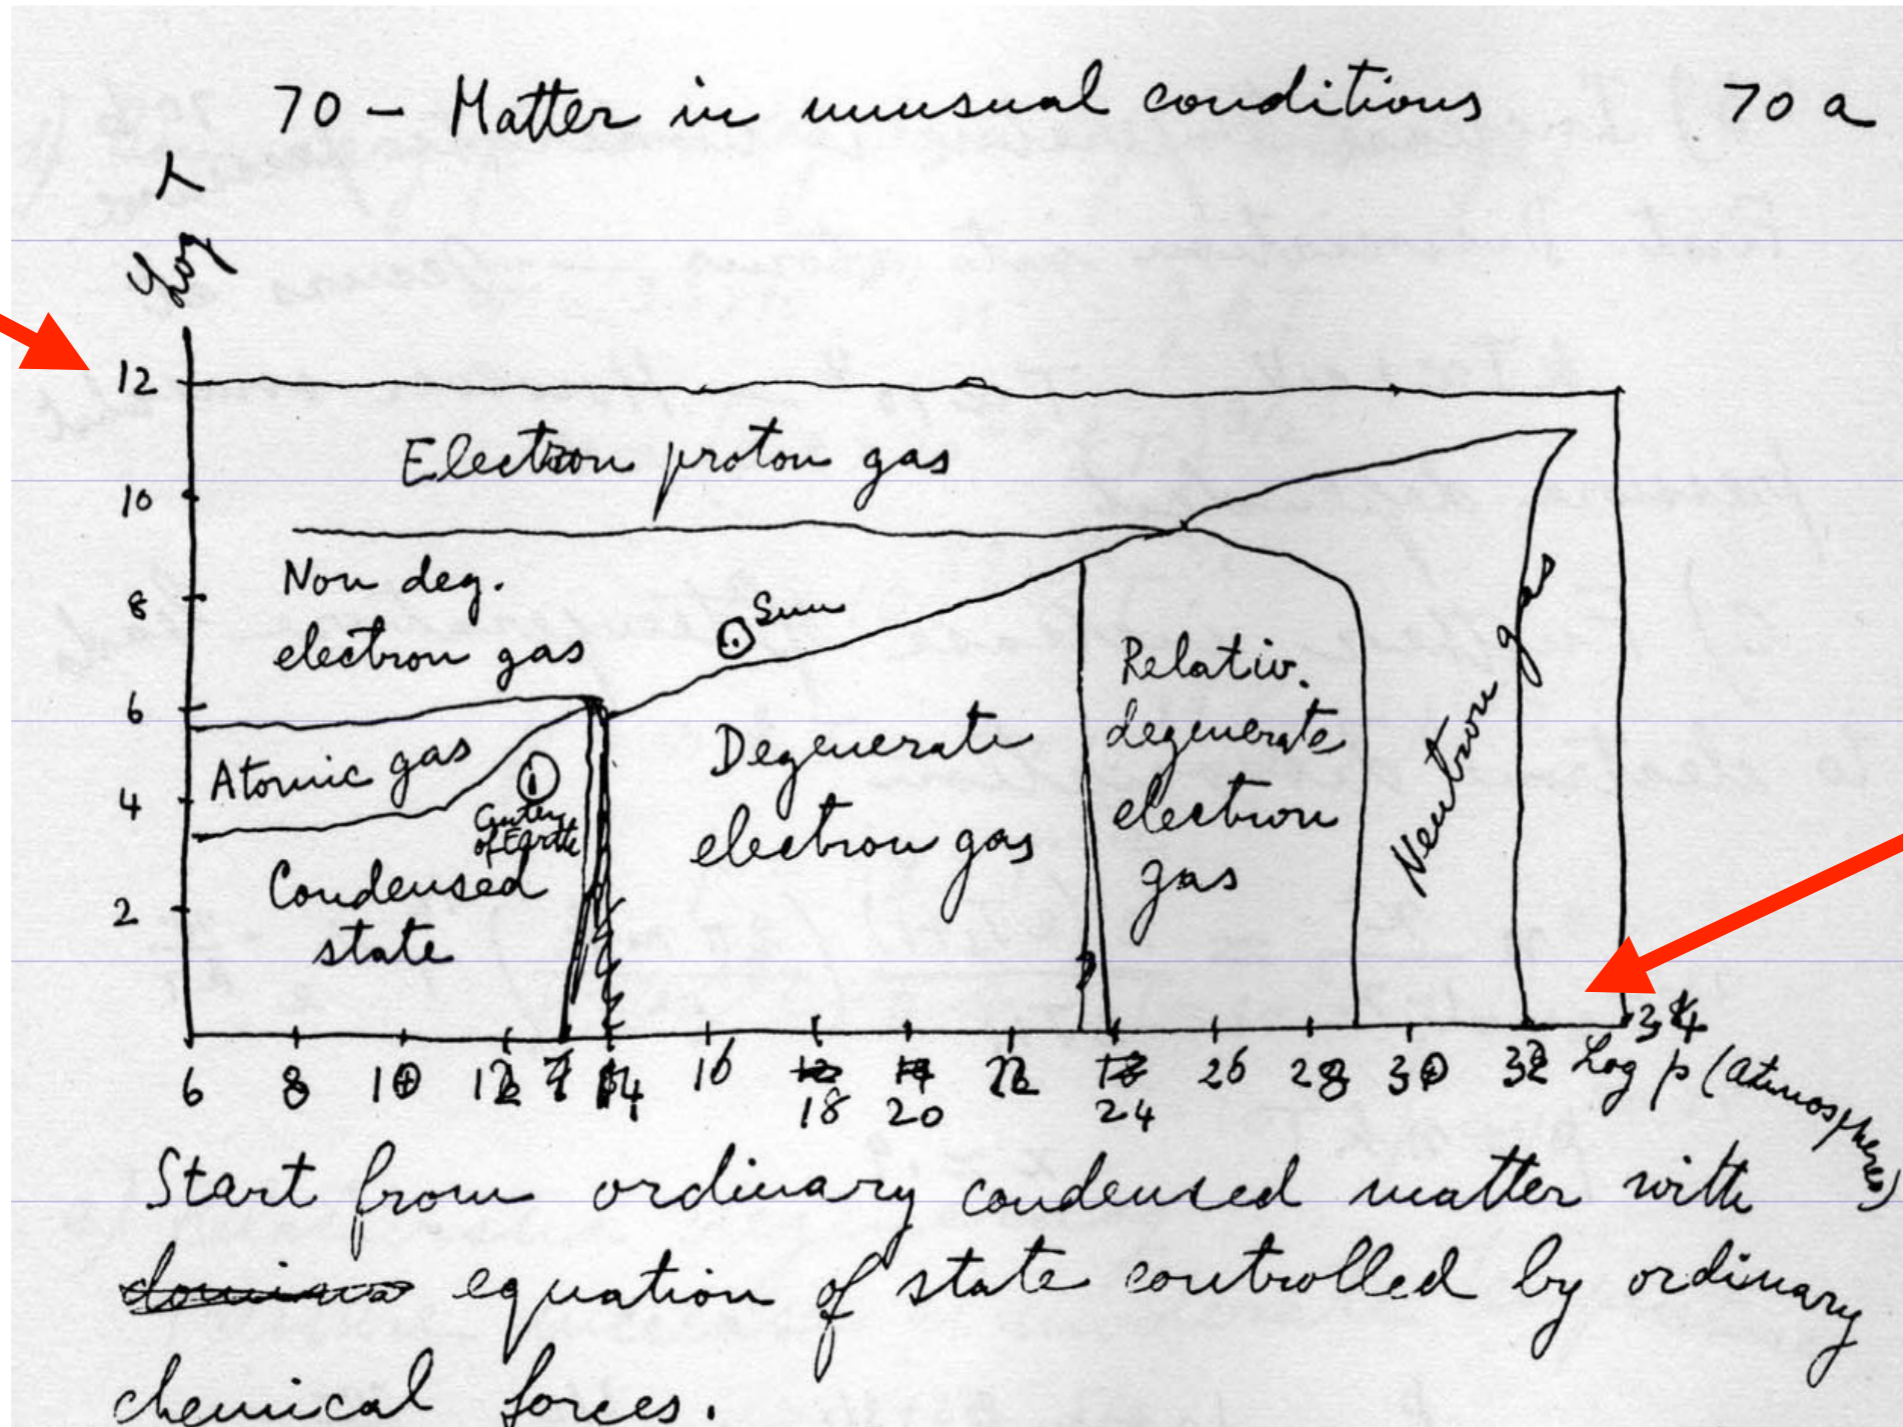 70 – Matter in unusual conditions 70 a
Log T
12
Electron proton gas
10
Non deg.
electron gas
8
Sun
6
Atomic gas
4
Center
of Earth
Condensed
state
2
Degenerate
electron gas
Relativ.
degenerate
electron
gas
Neutron gas
34
6 8 10 12 14 16 18 20 22 24 26 28 30 32 Log p (atmospheres)
Start from ordinary condensed matter with
equation of state controlled by ordinary
chemical forces.